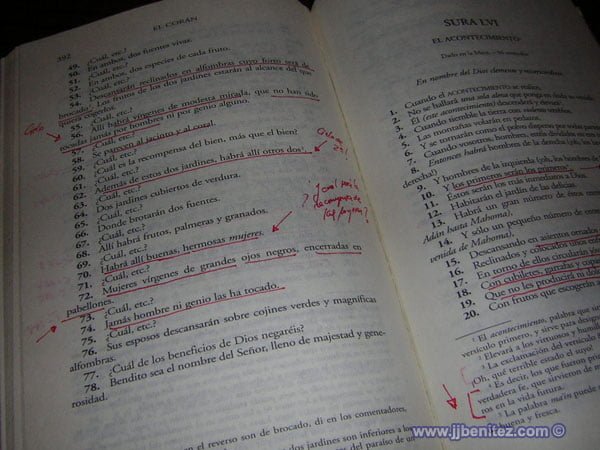 392
EL CORÁN
49. ¿Cuál, etc.?
50. En ambos, dos fuentes vivas.
51. ¿Cuál, etc.?
52. En ambos, dos especies de cada fruto.
53. ¿Cuál, etc.?
54. Descansarán reclinados en alfombras cuyo forro será de
brocado. Los frutos de los dos jardines estarán al alcance del que
quiera cogerlos.
55. ¿Cuál, etc.?
56. Allí habrá vírgenes de modesta mirada, que no han sido
tocadas jamás por hombres ni por genio alguno.
57. ¿Cuál, etc.?
58. Se parecen al jacinto y al coral.
59. ¿Cuál, etc.?
60. ¿Cuál es la recompensa del bien, más que el bien?
61. ¿Cuál, etc.?
62. Además de estos dos jardines, habrá allí otros dos
63. ¿Cuál, etc.?
64. Dos jardines cubiertos de verdura.
65. ¿Cuál, etc.?
66. Donde brotarán dos fuentes.
67. ¿Cuál, etc.?
68. Allí habrá frutos, palmeras y granados.
69. ¿Cuál, etc.?
70. Habrá allí buenas, hermosas mujeres.
71. ¿Cuál, etc.?
72. Mujeres vírgenes de grandes ojos negros, encerradas en
pabellones.
73. ¿Cuál, etc.?
74. Jamás hombre ni genio las ha tocado.
75. ¿Cuál, etc.?
76. Sus esposos descansarán sobre cojines verdes y magníficas
alfombras.
77. ¿Cuál de los beneficios de Dios negaréis?
78. Bendito sea el nombre del Señor, lleno de majestad y gene-
rosidad.
en el reverso son de brocado, di en los comentadores,
dos jardines son inferiores a los
del paraíso de un
SURA LVI
EL ACONTECIMIENTO
Dado en la Meca
En nombre del Dios clemente y misericordioso
1. Cuando el ACONTECIMIENTO se realice,
2. No se hallará una sola alma que ponga en duda su
3. Él (este acontecimiento) descenderá y elevará
4. Cuando tiemble la tierra con violento temblor,
5. Las montañas volarán en pedazos
6. Y se tornarán como el polvo disperso por todas partes
7. Cuando vosotros, hombres, estéis divididos en
8. Entonces habrá hombres de la
derecha)
9. Y hombres de la izquierda
10. Y los primeros serán los primeros
11. Estos serán los más inmediatos a Dios.
12. Habitarán el jardín de las delicias.
13. Habrá un gran número de éstos
Adán hasta Mahoma),
14. Y sólo un pequeño número
venida de Mahoma),
15. Descansando en asientos
16. Reclinados y colocados unos
17. En torno de ellos circularán
18. Con cubiletes, garrafas y copas
19. Que no les producirá ni dolor
20. Con frutos que escogerán
El acontecimiento, palabra que
versículo primero, y sirve para
Elevará a los virtuosos y humill
La exclamación del versículo
¡Oh, qué terrible estado el suyo!
Es decir, los que fueron
verdadera fe, que sirvieron de
ros en la vida futura.
La palabra maïn puede
buena y fresca.
www.jjbenitez.com ©